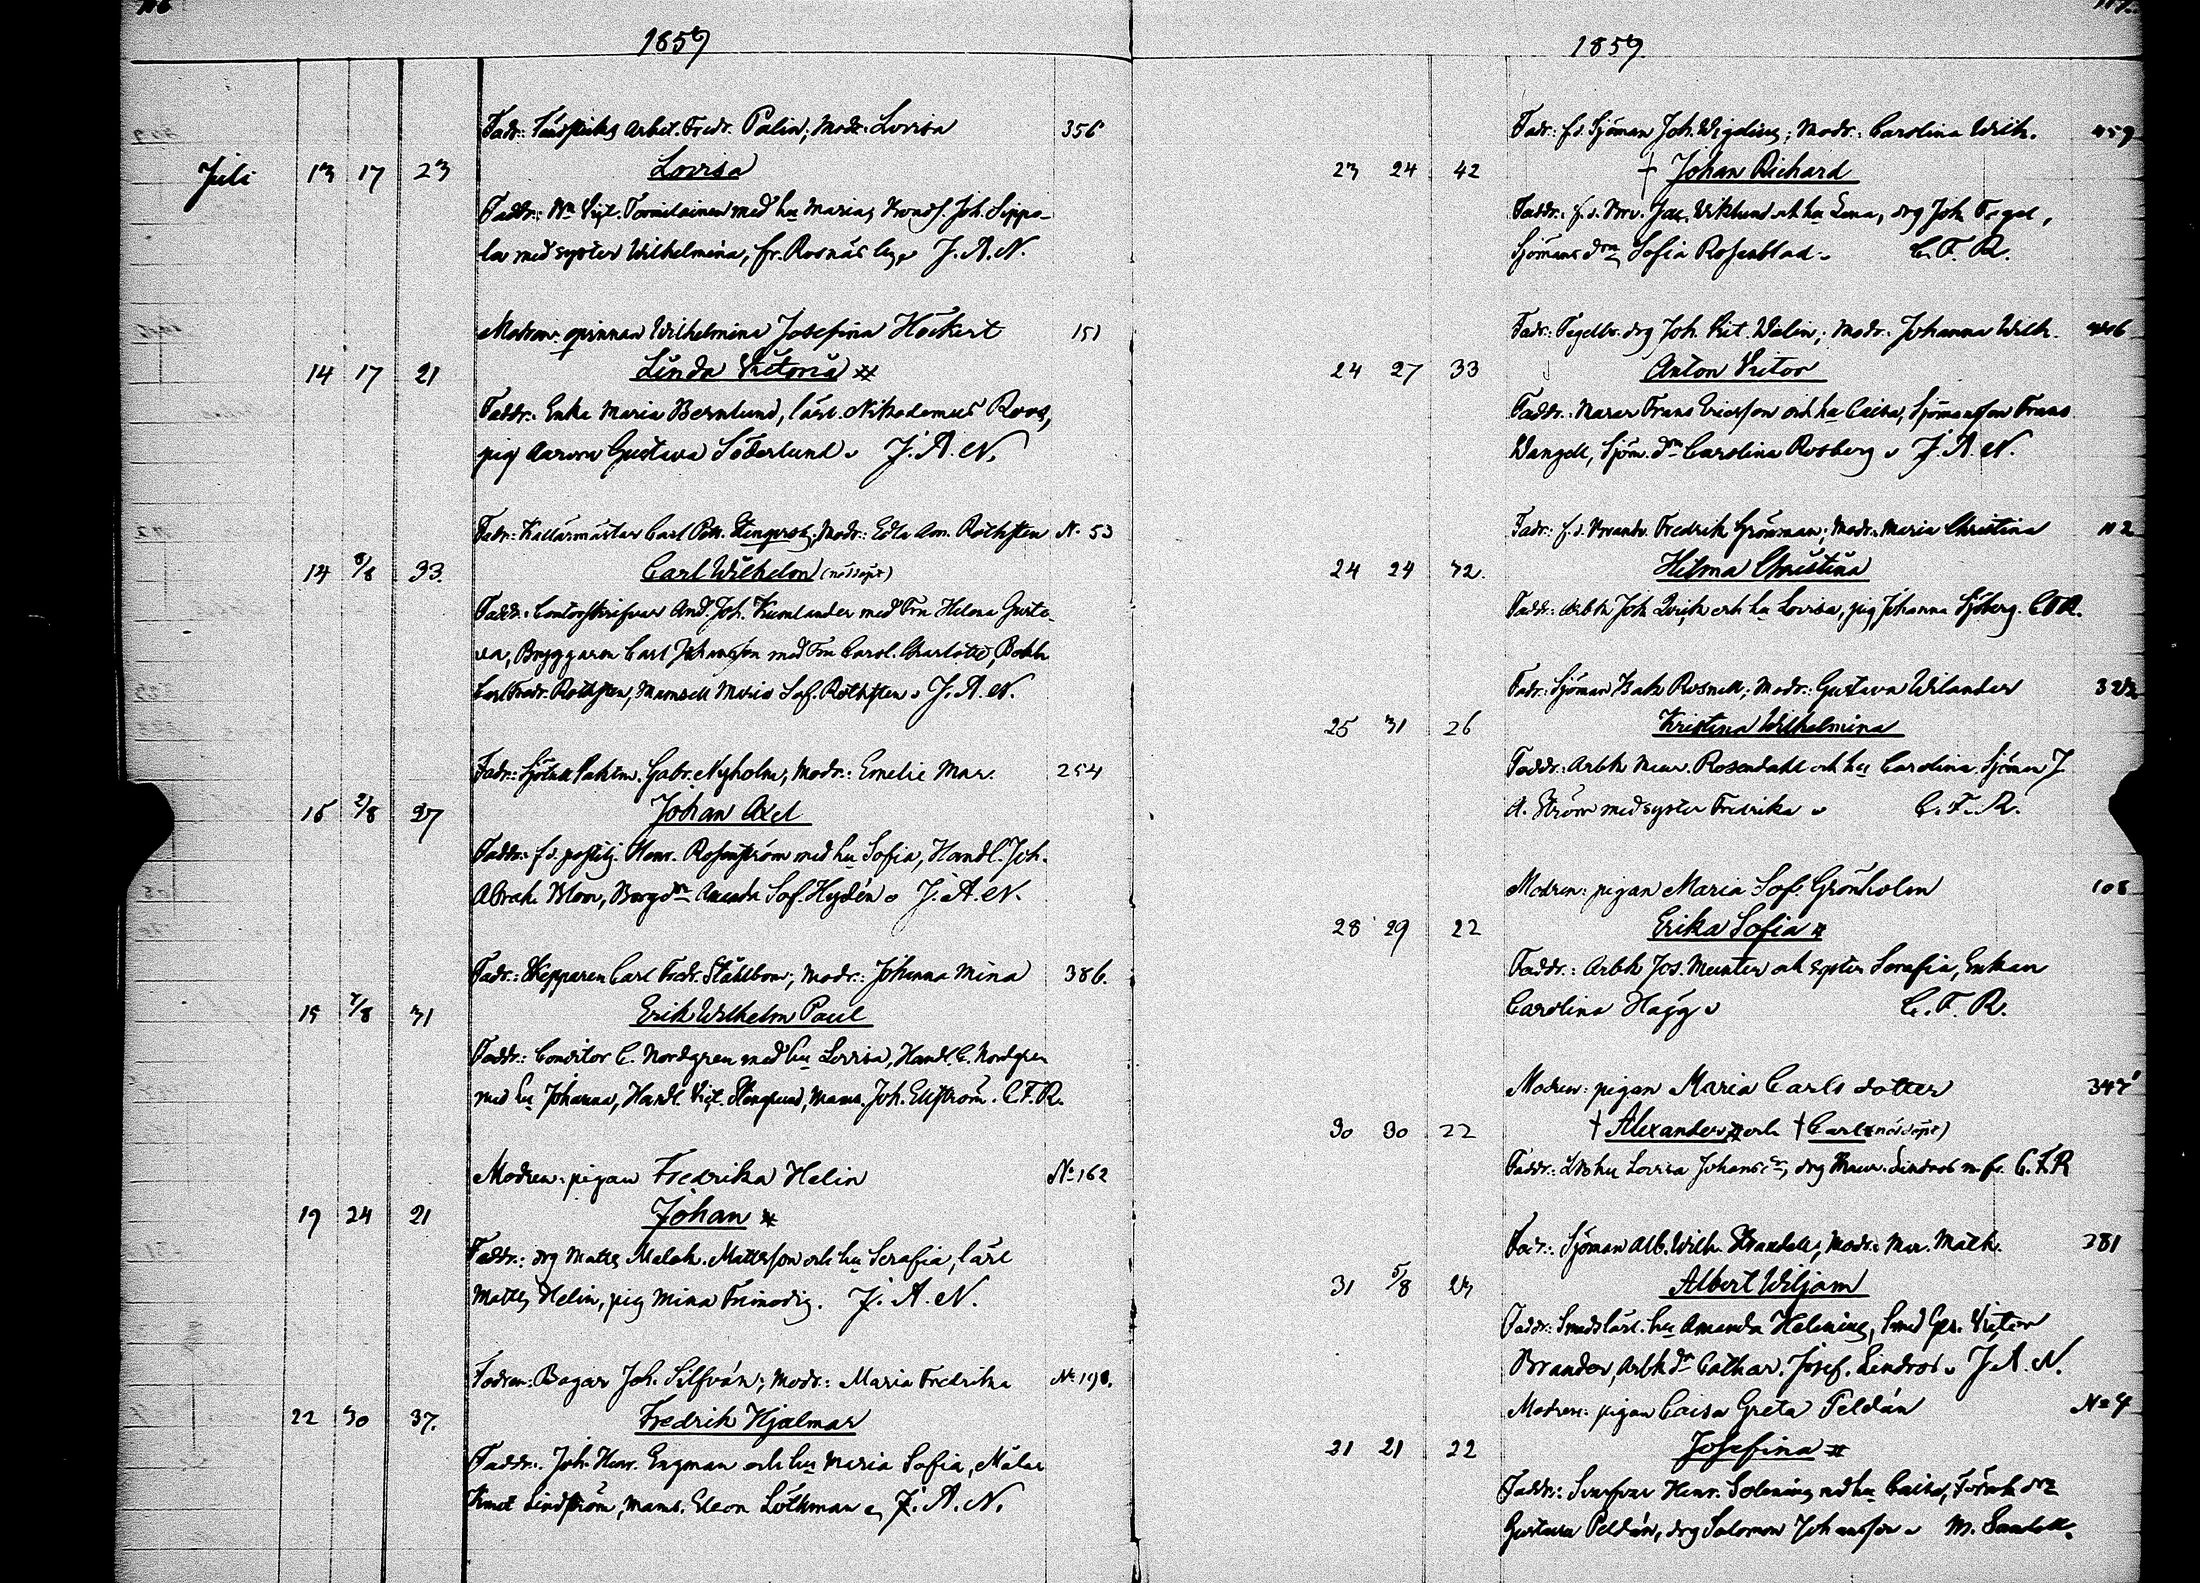 116
1859
Fadr: Arbet. Fredr. Palin; Modr: Lovisa 356
Juli 13 17 23 Lovisa
Faddr: Vict. med hu Maria, Joh. Sippo-
la med syster Wilhelmina, fr. Rosnäs J. A. N.
Modren: qvinnan Wilhelmina Josefina Höckert 151
14 17 21 Linda Victoria #
Faddr: Enka Maria Bernlund, lärl. Nikodemus Roos,
pig Aurora Gustava Söderlund. J. A. N.
Fadr: Källarmästar Carl Petr. Stenqvist; Modr: Edla Am. Rothsten No 53
14 8/8 33. Carl Wilhelm (nödöpt)
Faddr: Contorskrifvar And. Joh. Kumlander med Fru Helena Gusta-
va, Bryggaren Carl Johansson med Fru Carol. Charlotta, Bokh
Carl Fredr. Rothsten, Mamsell Maria Sof. Rothsten. J. A. N.
Fadr: Gabr. Nyholm; Modr: Emelie Mar. 254
15 2/8 27 Johan Axel
Faddr: f.d. postilj. Henr. Rosenström med hu Sofia, Handl. Joh.
Abrah. Blom, Borgdr Amanda Sof. Hydén. J. A. N.
Fadr: Skepparen Carl Fredr. Ståhlbom; Modr: Johanna Mina 386.
15 7/8 31 Erik Wilhelm Paul
Faddr: Conditor C. Nordgren med hu Lovisa, Handl. C. Nordgren
med hu Johanna, Handl. Vict. Mams. Joh. Elfström. C. F. R.
Modren: pigan Fredrika Helin No 162
19 24 21 Johan #
Faddr: drg Matts Malak. Mattsson och hu Serafia, lärl
Matts Helin, pig Mina Trinodig. J. A. N.
Fadren: Bagar Joh. Silfván; Modr: Maria Fredrika No 198.
22 30 37. Fredrik Hjalmar
Faddr: Joh. Henr. Engman och hu Maria Sofia, Målar
Knut Lindström, Mams. Eleon Löthman. J. A. N.
117.
1859.
Fadr: f.d. Sjöman Joh. Wigelius; Modr: Carolina Wilh. 459
23 24 42 † Johan Richard
Faddr: f.d. Jac. Wiklund och hu Lena, drg Joh. Fogel,
Sjömans dr Sofia Rosenblad. C. F. R.
Fadr: drg Joh. Vict. Walin; Modr: Johanna Wilh.
24 27 33 Anton Victor
Faddr: Murar Frans Ericsson och hu Caisa, Sjömansson Frans
Wangell, Sjöm. dr Carolina Rosberg. J. A. N.
Fadr: f.d. Fredrik Grönman; Modr: Maria Christina 112
24 24 32. Hilma Christina
Faddr: Arbk Joh. Qvick och hu Lovisa, pig Johanna Sjöberg. C. F. R.
Fadr: Sjöman Isak Rosnell; Modr: Gustava Wilander
25 31 26 Kristina Wilhelmina
Faddr: Arbk Rosendahl och hu Carolina, Sjöman J.
A. Ström med syster Fredrika. C. F. R.
Modren: pigan Maria Sof. Grönholm 108
28 29 22 Erika Sofia #
Faddr: Arbk Jos. Munter och syster Serafia, Enkan
Carolina Hägg. C. F. R.
Modren: pigan Maria Carls dotter 347
30 30 22 † Alexander # och † Carl # (nöddöpt)
Faddr: Lovisa Johansdr, drg Lindroos m. fl. C. F. R
Fadr: Sjöman Alb. Wilh. Modr: Mar. Math. 381
31 5/8 Albert Wiljam
Faddr: Smedslärl. hu Amanda Helenius, Smed Ges. Victor
Brander, Arbk dr Cathar. Josef. Lindroos. J. A. N.
Modren: pigan Caisa Greta Peldán No 4
21 21 22 Josefina #
Faddr: Svarfvar Henr. Solenius md hu Caisa,
Gustava Peldán, drg Salomon Johansson.